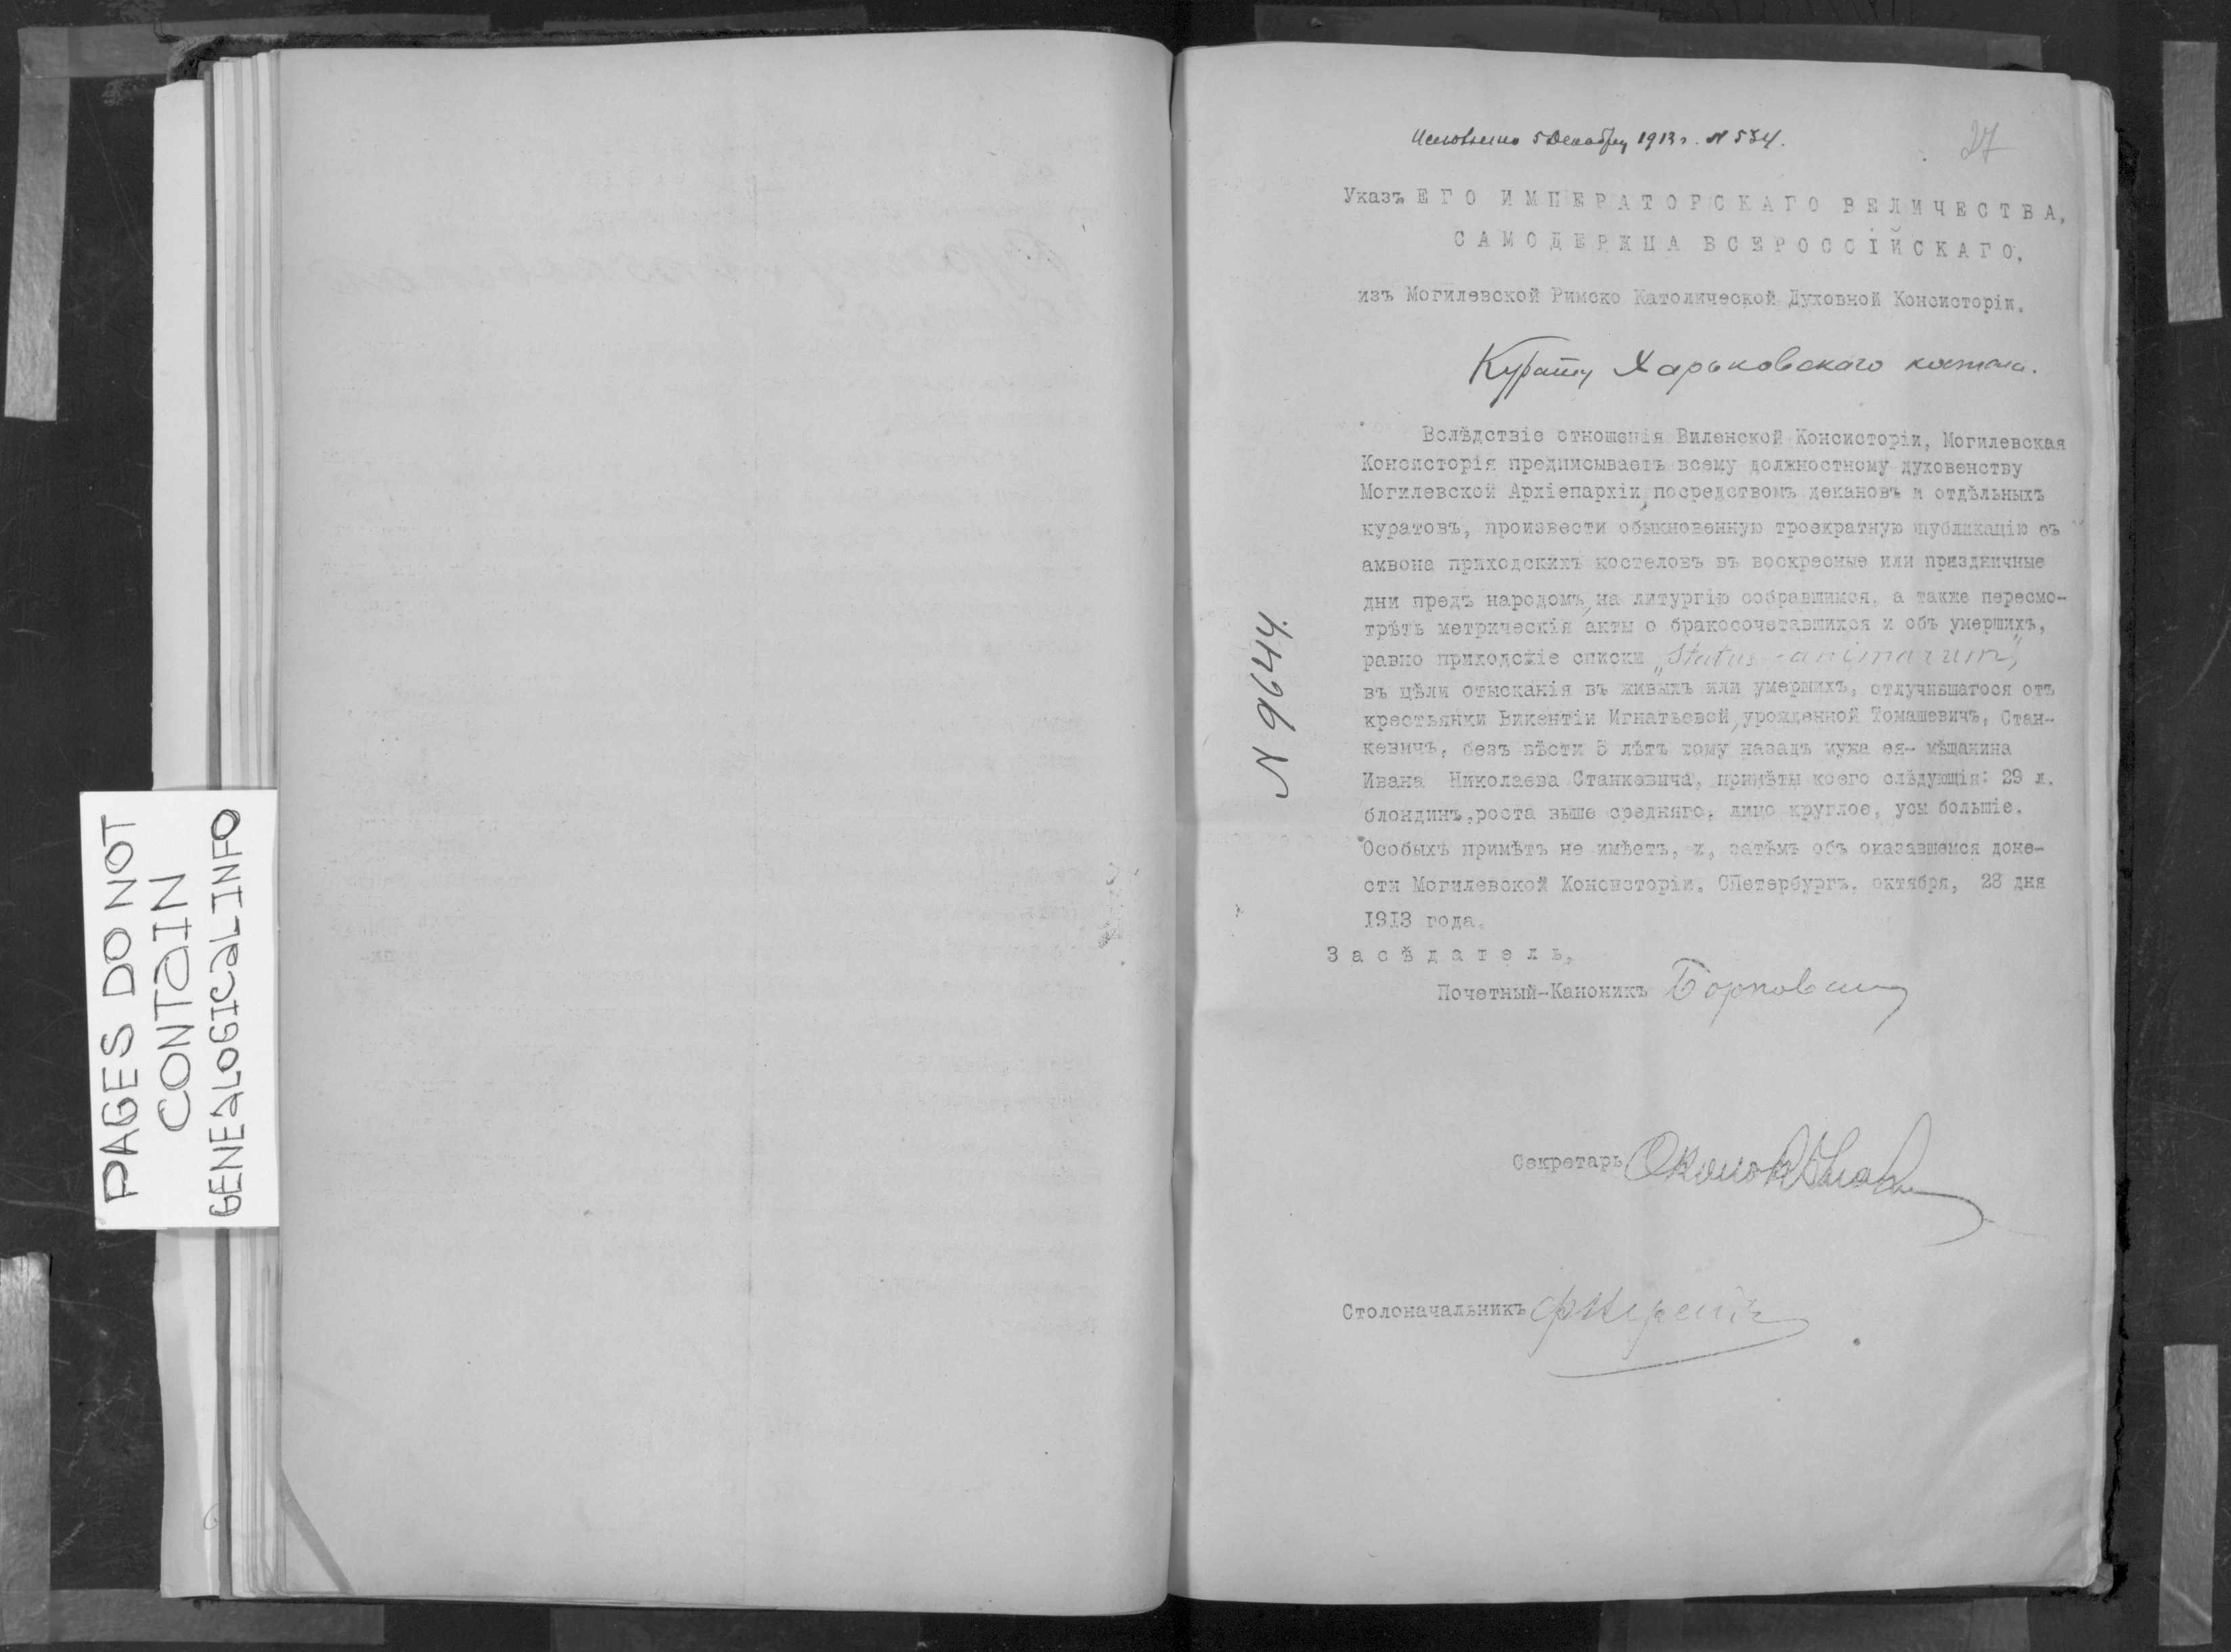 PAGES DO NOT
CONTAIN
GENEALOGICAL INFO
Исполнено 5 Декабря 1913 г. N 534.
27
Указъ ЕГО ИМПЕРАТОРСКАГО ВЕЛИЧЕСТВА,
САМОДЕРЖЦА ВСЕРОССІЙСКАГО,
изъ Могилевской Римско Католической Духовной Консисторіи.
Курату Харьковскаго костела.
N 9644.
Вслѣдствіе отношенія Виленской Консисторіи, Могилевская
Консисторія предписываетъ всему должностному духовенству
Могилевской Архіепархіи, посредствомъ декановъ и отдѣльныхъ
куратовъ, произвести обыкновенную троекратную публикацію съ
амвона приходскихъ костеловъ въ воскресные или праздничные
дни предъ народомъ, на литургію собравшимся, а также пересмо-
трѣть метрическія акты о бракосочетавшихся и объ умершихъ,
равно приходскіе списки „Status animarum",
въ цѣли отысканія въ живыхъ или умершихъ, отлучившагося отъ
крестьянки Викентіи Игнатьевой, урожденной Томашевичъ, Стан-
кевичъ, безъ вѣсти 5 лѣтъ тому назадъ мужа ея- мѣщанина
Ивана Николаева Станкевича, примѣты коего слѣдующія: 29 л.
блондинъ, роста выше средняго, лицо круглое, усы большіе.
Особыхъ примѣтъ не имѣетъ, и, затѣмъ объ оказавшемся доне-
сти Могилевской Консисторіи. СПетербургъ, октября, 28 дня
1913 года.
Засѣдатель,
Почетный-Каноникъ
Секретарь
Столоначальникъ